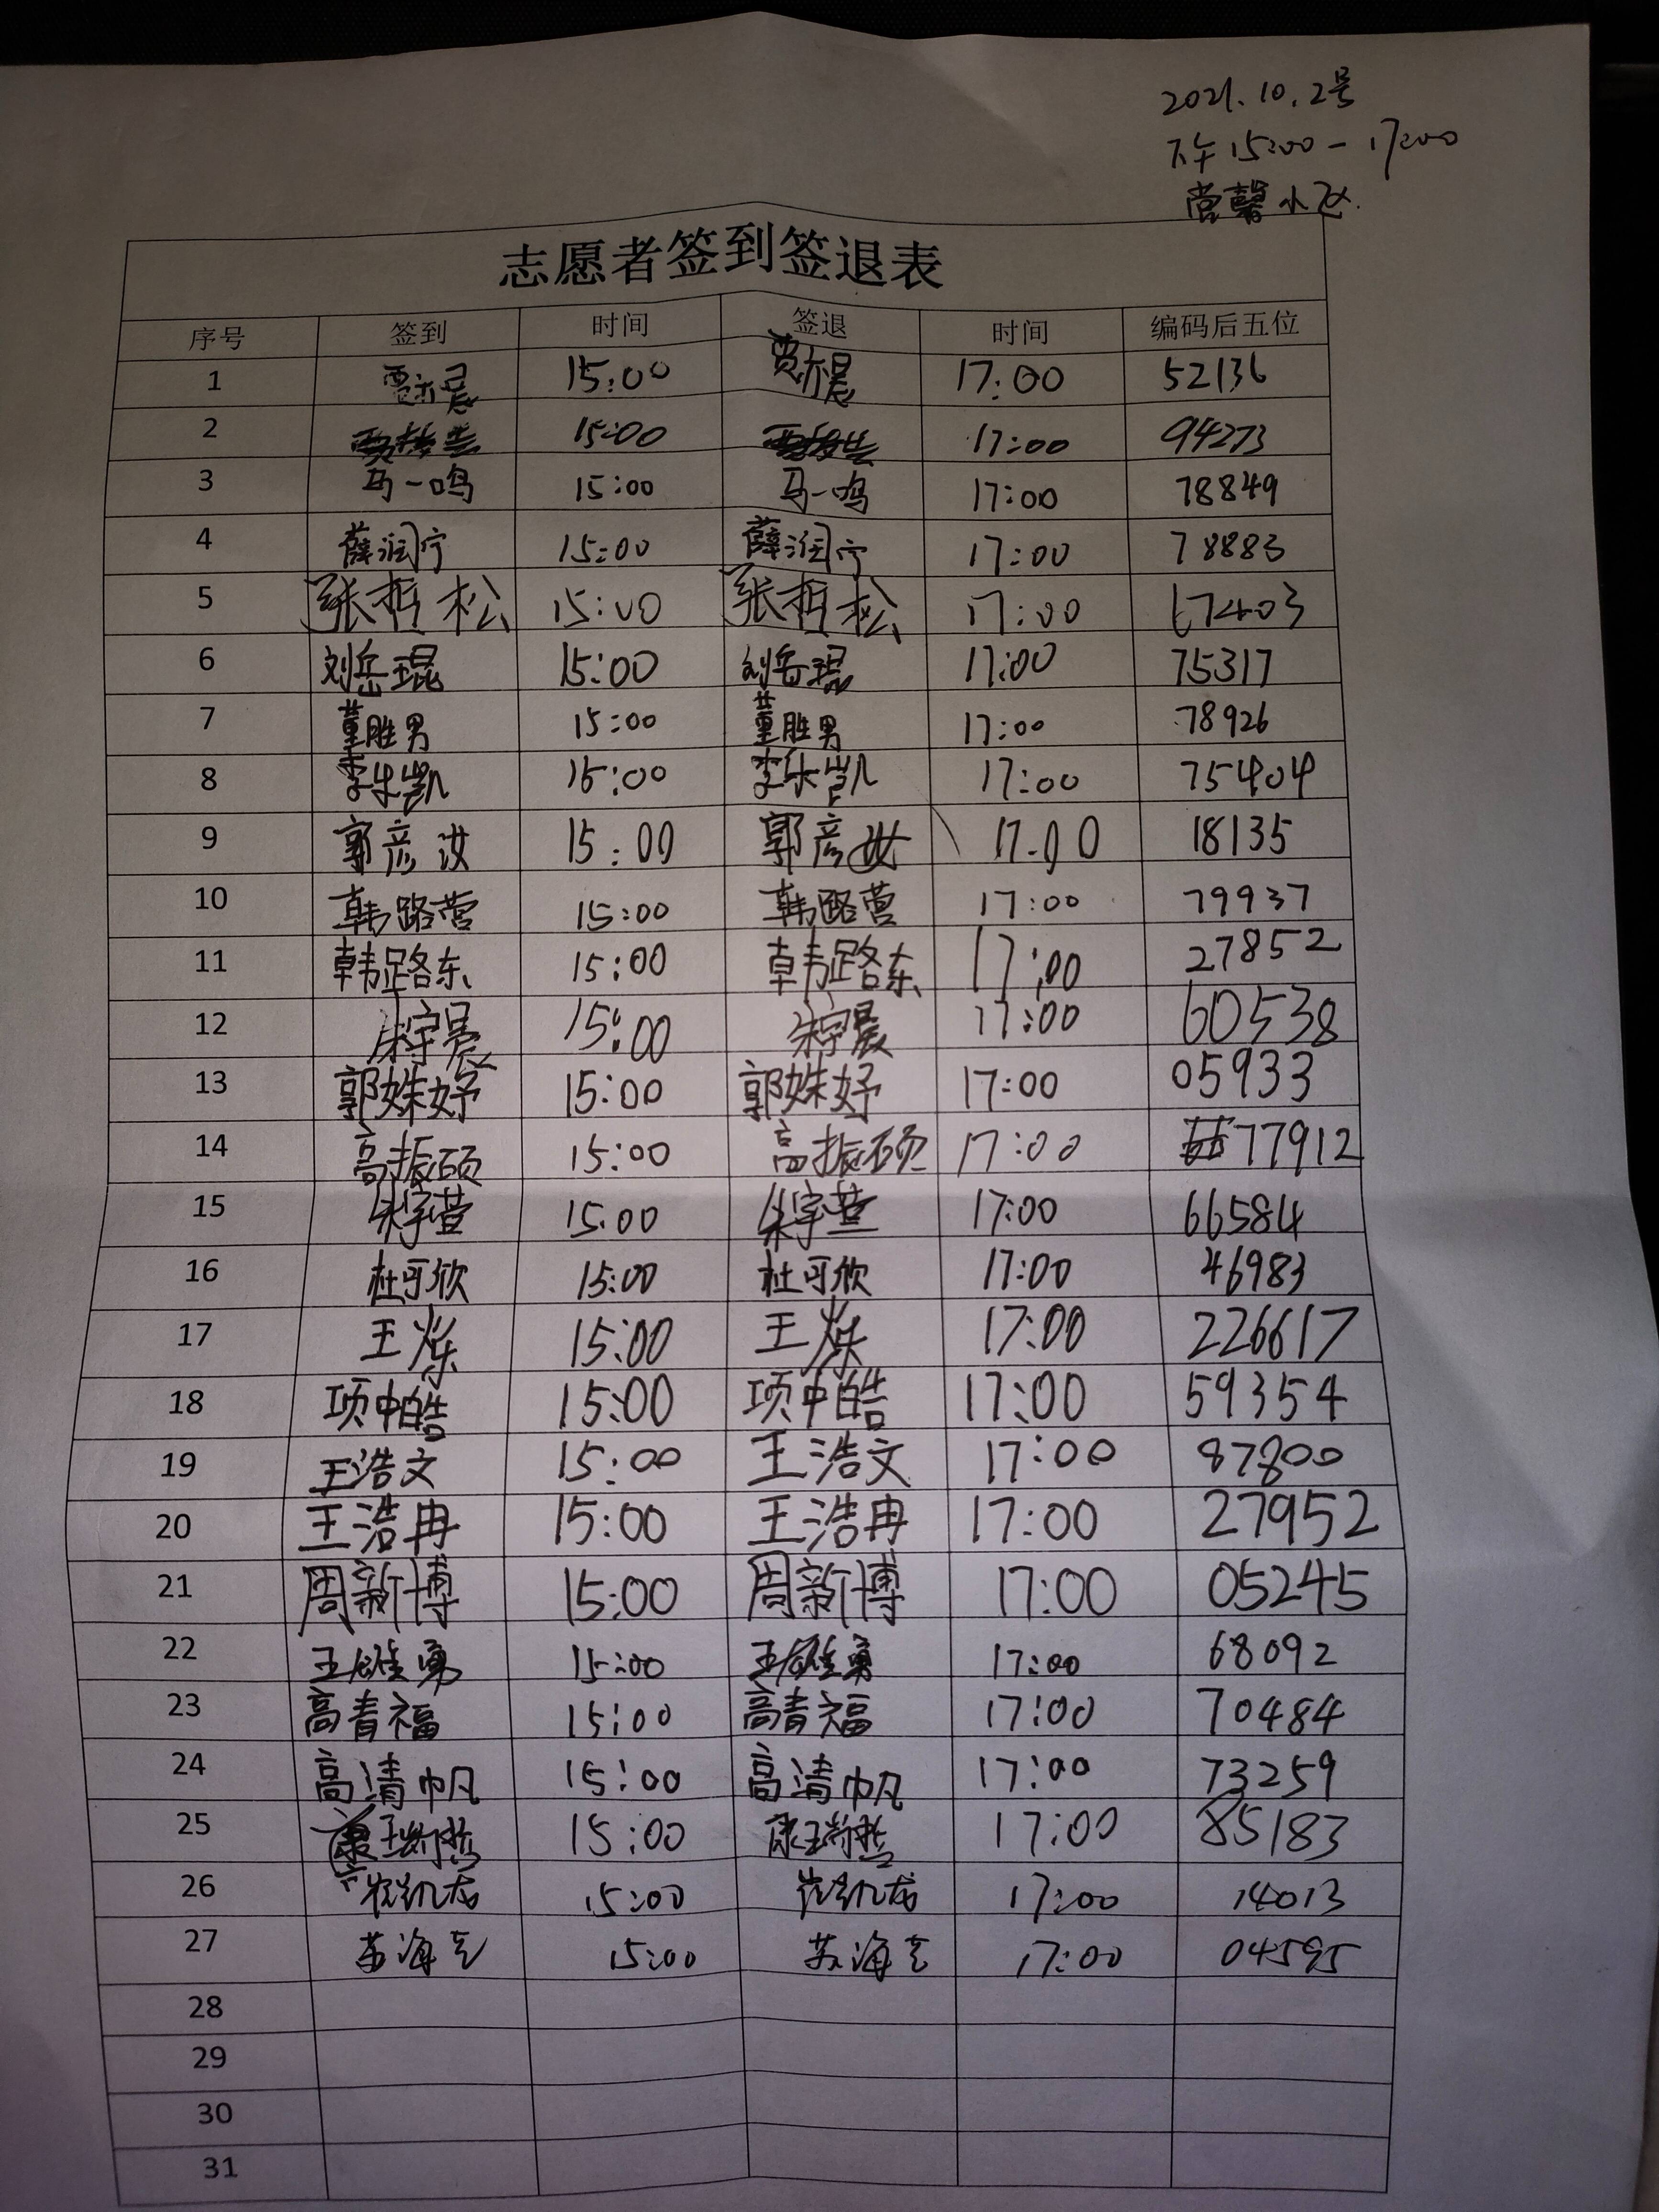 2021.10.2号
下午15:00-17:00
营馨小区.
志愿者签到签退表
序号 签到 时间 签退 时间 编码后五位
1 贾亦晨 15:00 贾亦晨 17:00 52136
2 15:00 17:00 94273
3 马一鸣 15:00 马一鸣 17:00 78849
4 薛润宁 15:00 薛润宁 17:00 78883
5 张哲松 15:00 张哲松 17:00 67403
6 刘岳琨 15:00 刘岳琨 17:00 75317
7 董胜男 15:00 董胜男 17:00 78926
8 李乐凯 15:00 李乐凯 17:00 75404
9 郭彦汝 15:00 郭彦汝 17:00 18135
10 韩路营 15:00 韩路营 17:00 79937
11 韩路东 15:00 韩路东 17:00 27852
12 宇晨 15:00 宇晨 17:00 60538
13 郭姝妤 15:00 郭姝妤 17:00 05933
14 高振硕 15:00 高振硕 17:00 77912
15 宇萱 15:00 宇萱 17:00 66584
16 杜可欣 15:00 杜可欣 17:00 46983
17 王烁 15:00 王烁 17:00 226617
18 项中皓 15:00 项中皓 17:00 59354
19 王浩文 15:00 王浩文 17:00 87800
20 王浩冉 15:00 王浩冉 17:00 27952
21 周新博 15:00 周新博 17:00 05245
22 王 勇 15:00 王 勇 17:00 68092
23 高青福 15:00 高青福 17:00 70484
24 高清帆 15:00 高清帆 17:00 73259
25 康 15:00 康 17:00 85183
26 崔凯龙 15:00 崔凯龙 17:00 14013
27 苏海 15:00 苏海 17:00 04595
28
29
30
31